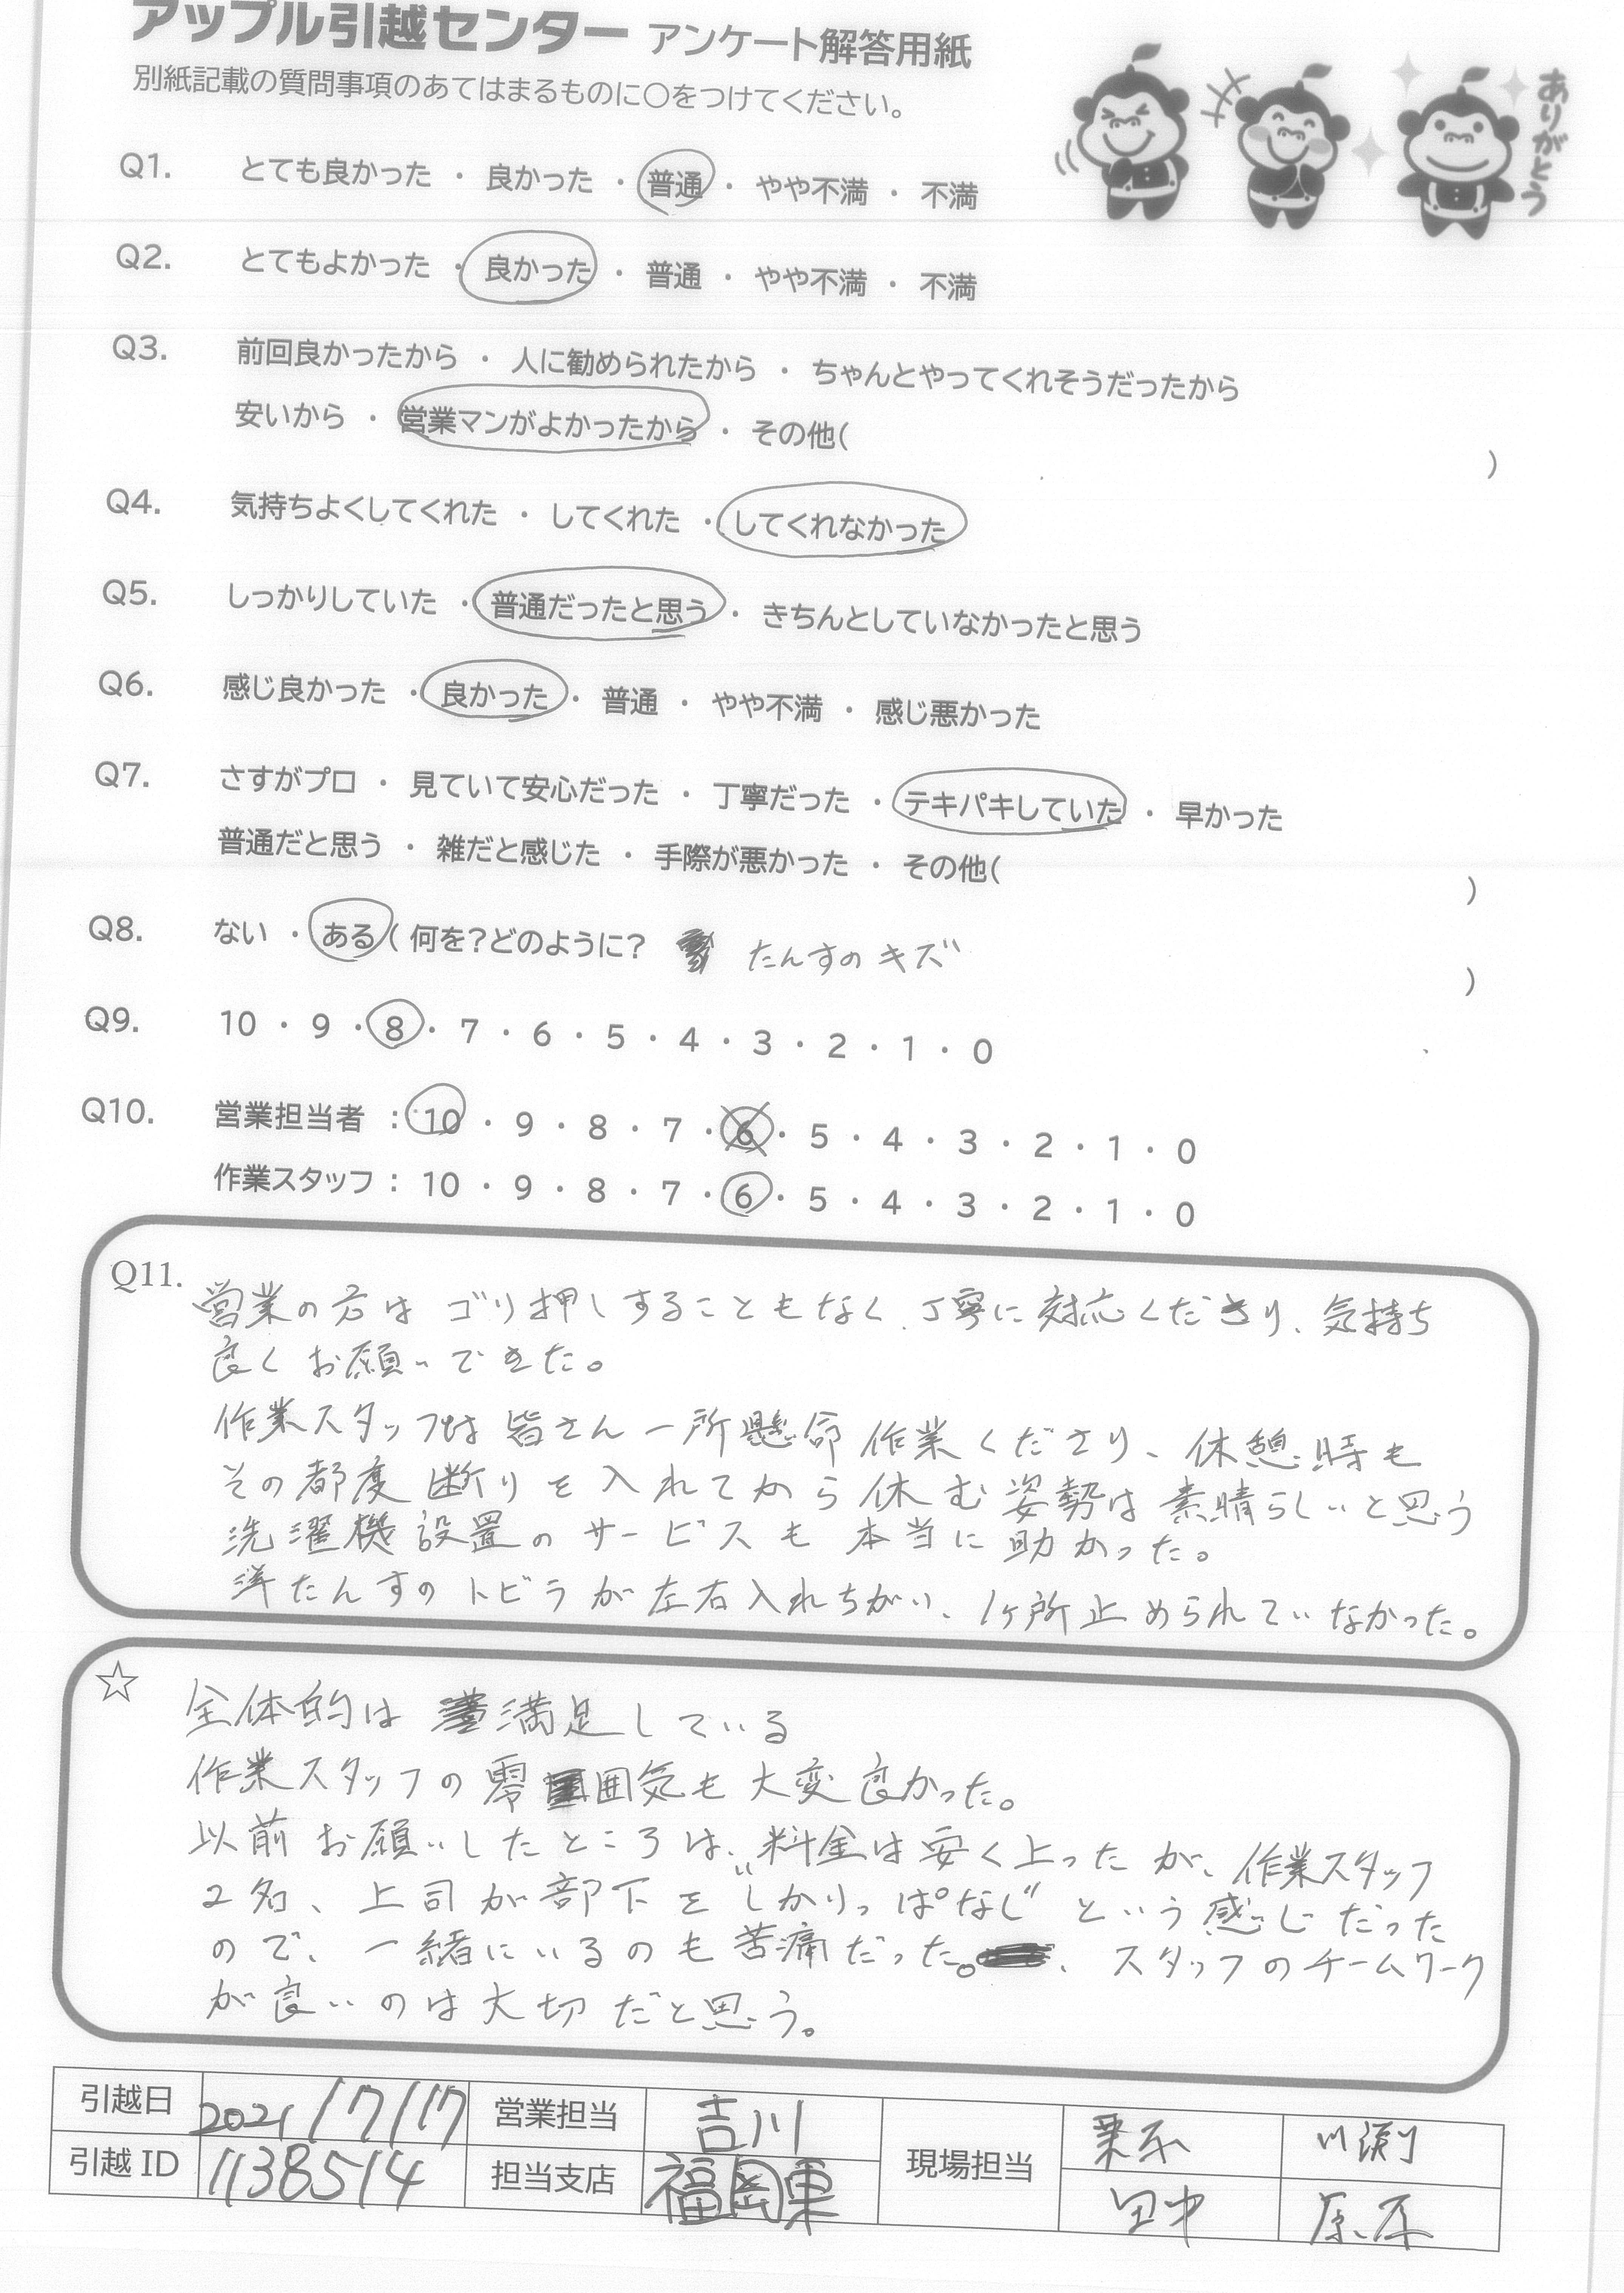 アップル引越センター アンケート解答用紙
別紙記載の質問事項のあてはまるものに〇をつけてください。
ありがとう
Q1. とても良かった ・ 良かった ・ 普通 ・ やや不満 ・ 不満
Q2. とてもよかった ・ 良かった ・ 普通 ・ やや不満 ・ 不満
Q3. 前回良かったから ・ 人に勧められたから ・ ちゃんとやってくれそうだったから
安いから ・ 営業マンがよかったから ・ その他( )
Q4. 気持ちよくしてくれた ・ してくれた ・ してくれなかった
Q5. しっかりしていた ・ 普通だったと思う ・ きちんとしていなかったと思う
Q6. 感じ良かった ・ 良かった ・ 普通 ・ やや不満 ・ 感じ悪かった
Q7. さすがプロ ・ 見ていて安心だった ・ 丁寧だった ・ テキパキしていた ・ 早かった
普通だと思う ・ 雑だと感じた ・ 手際が悪かった ・ その他( )
Q8. ない ・ ある ( 何を?どのように? たんすのキズ )
Q9. 10 ・ 9 ・ 8 ・ 7 ・ 6 ・ 5 ・ 4 ・ 3 ・ 2 ・ 1 ・ 0
Q10. 営業担当者 : 10 ・ 9 ・ 8 ・ 7 ・ 6 ・ 5 ・ 4 ・ 3 ・ 2 ・ 1 ・ 0
作業スタッフ : 10 ・ 9 ・ 8 ・ 7 ・ 6 ・ 5 ・ 4 ・ 3 ・ 2 ・ 1 ・ 0
Q11. 営業の方は ゴリ押しすることもなく、丁寧に対応くださり、気持ち
良くお願いできた。
作業スタッフは皆さん一所懸命作業くださり、休憩時も
その都度断りを入れてから休む姿勢は素晴らしいと思う
洗濯機設置のサービスも本当に助かった。
洋たんすのトビラが左右入れちがい、1ヶ所止められていなかった。
☆ 全体的は 満足している
作業スタッフの雰囲気も大変良かった。
以前お願いしたところは、料金は安く上ったが、作業スタッフ
2名、上司が部下を"しかりっぱなし"という感じだった
ので、一緒にいるのも苦痛だった。、スタッフのチームワーク
が良いのは大切だと思う。
引越日 2021/7/17 営業担当 吉川 現場担当 川渕
引越ID 1138514 担当支店 福岡東 田中